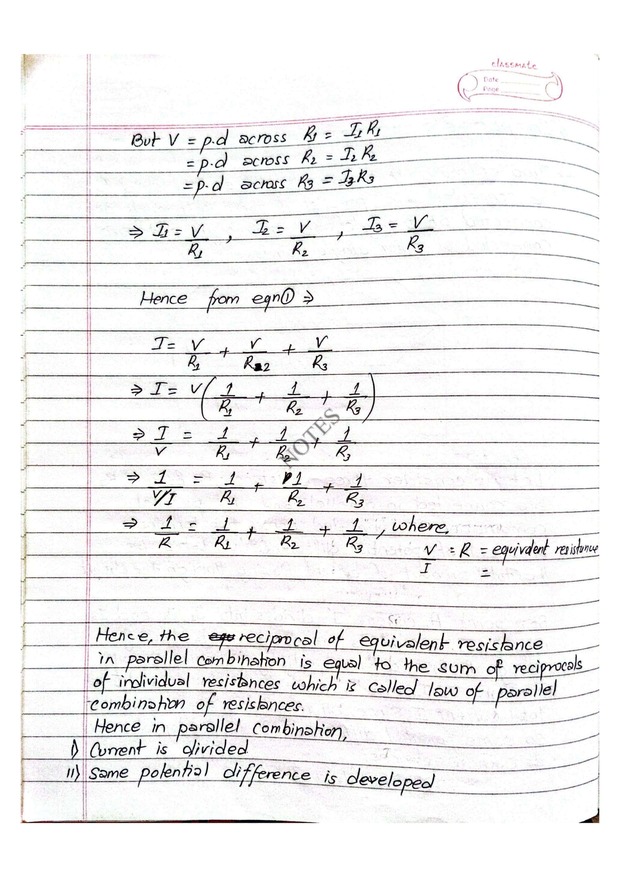 classmate
Date
Page
But V = p.d across R₁ = I₁R₁
= p.d across R₂ = I₂R₂
= p.d across R₃ = I₃R₃
⇒ I₁ = V/R₁ , I₂ = V/R₂ , I₃ = V/R₃
Hence from eqn① ⇒
I = V/R₁ + V/R₂ + V/R₃
⇒ I = V(1/R₁ + 1/R₂ + 1/R₃)
⇒ I/V = 1/R₁ + 1/R₂ + 1/R₃
NOTES
⇒ 1/(V/I) = 1/R₁ + 1/R₂ + 1/R₃
⇒ 1/R = 1/R₁ + 1/R₂ + 1/R₃ , where,
V/I = R = equivdent resistance
=
Hence, the reciprocal of equivalent resistance
in parallel combination is equal to the sum of reciprocals
of individual resistances which is called law of parallel
combination of resistances.
Hence in parallel combination,
i) Current is divided
ii) Same potential difference is developed